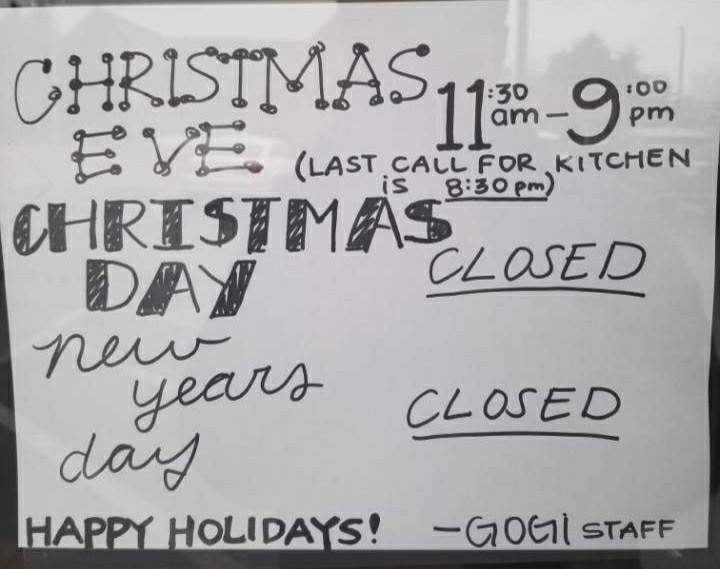 CHRISTMAS 11:30 am - 9:00 pm
EVE (LAST CALL FOR KITCHEN
is 8:30 pm)
CHRISTMAS
DAY CLOSED
new
years CLOSED
day
HAPPY HOLIDAYS! - GOGI STAFF